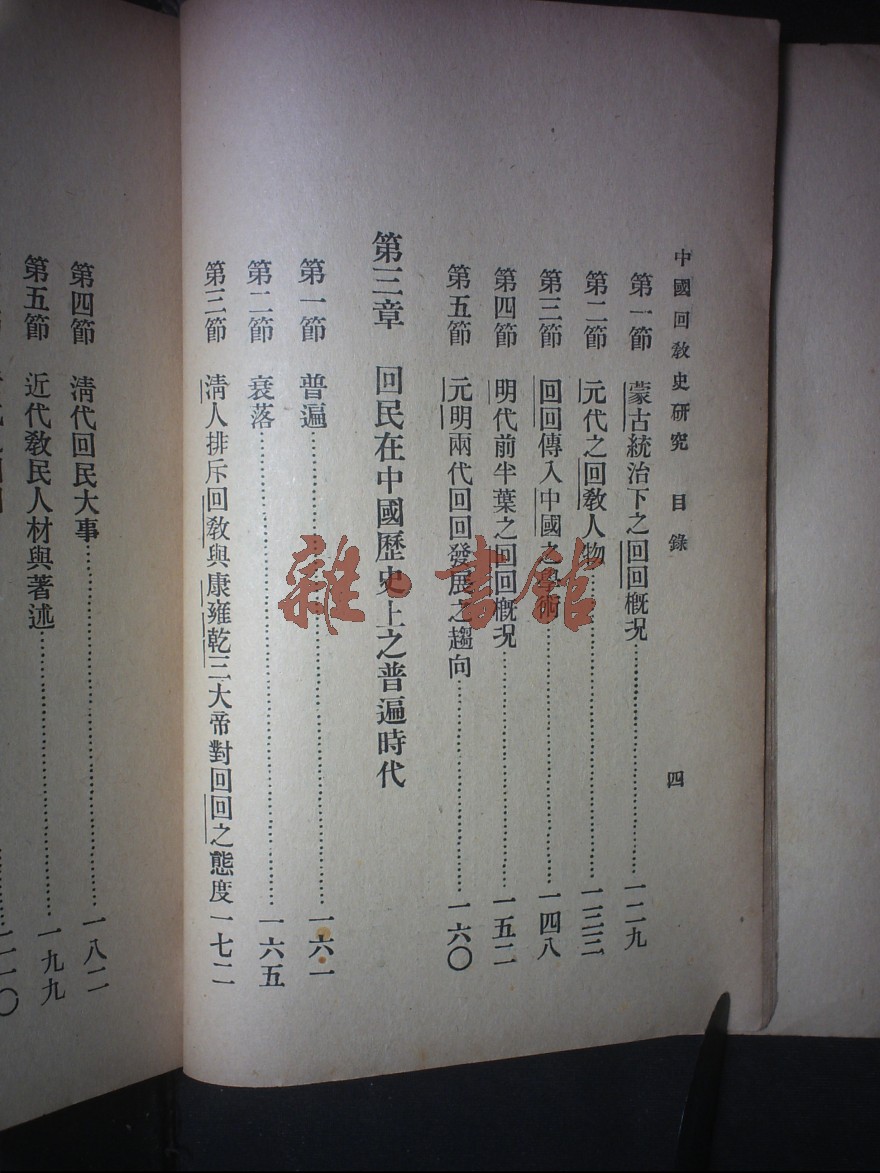 中國回敎史硏究　目錄　四
第一節　蒙古統治下之回回槪況……一二九
第二節　元代之回敎人物……一三三
第三節　回回傳入中國之學術……一四八
第四節　明代前半葉之回回槪況……一五二
第五節　元明兩代回回發展之趨向……一六〇
第三章　回民在中國歷史上之普遍時代
第一節　普遍……一六一
第二節　衰落……一六五
第三節　淸人排斥回敎與康雍乾三大帝對回回之態度一七二
第四節　淸代回民大事……一八二
第五節　近代敎民人材與著述……一九九
雜·書館